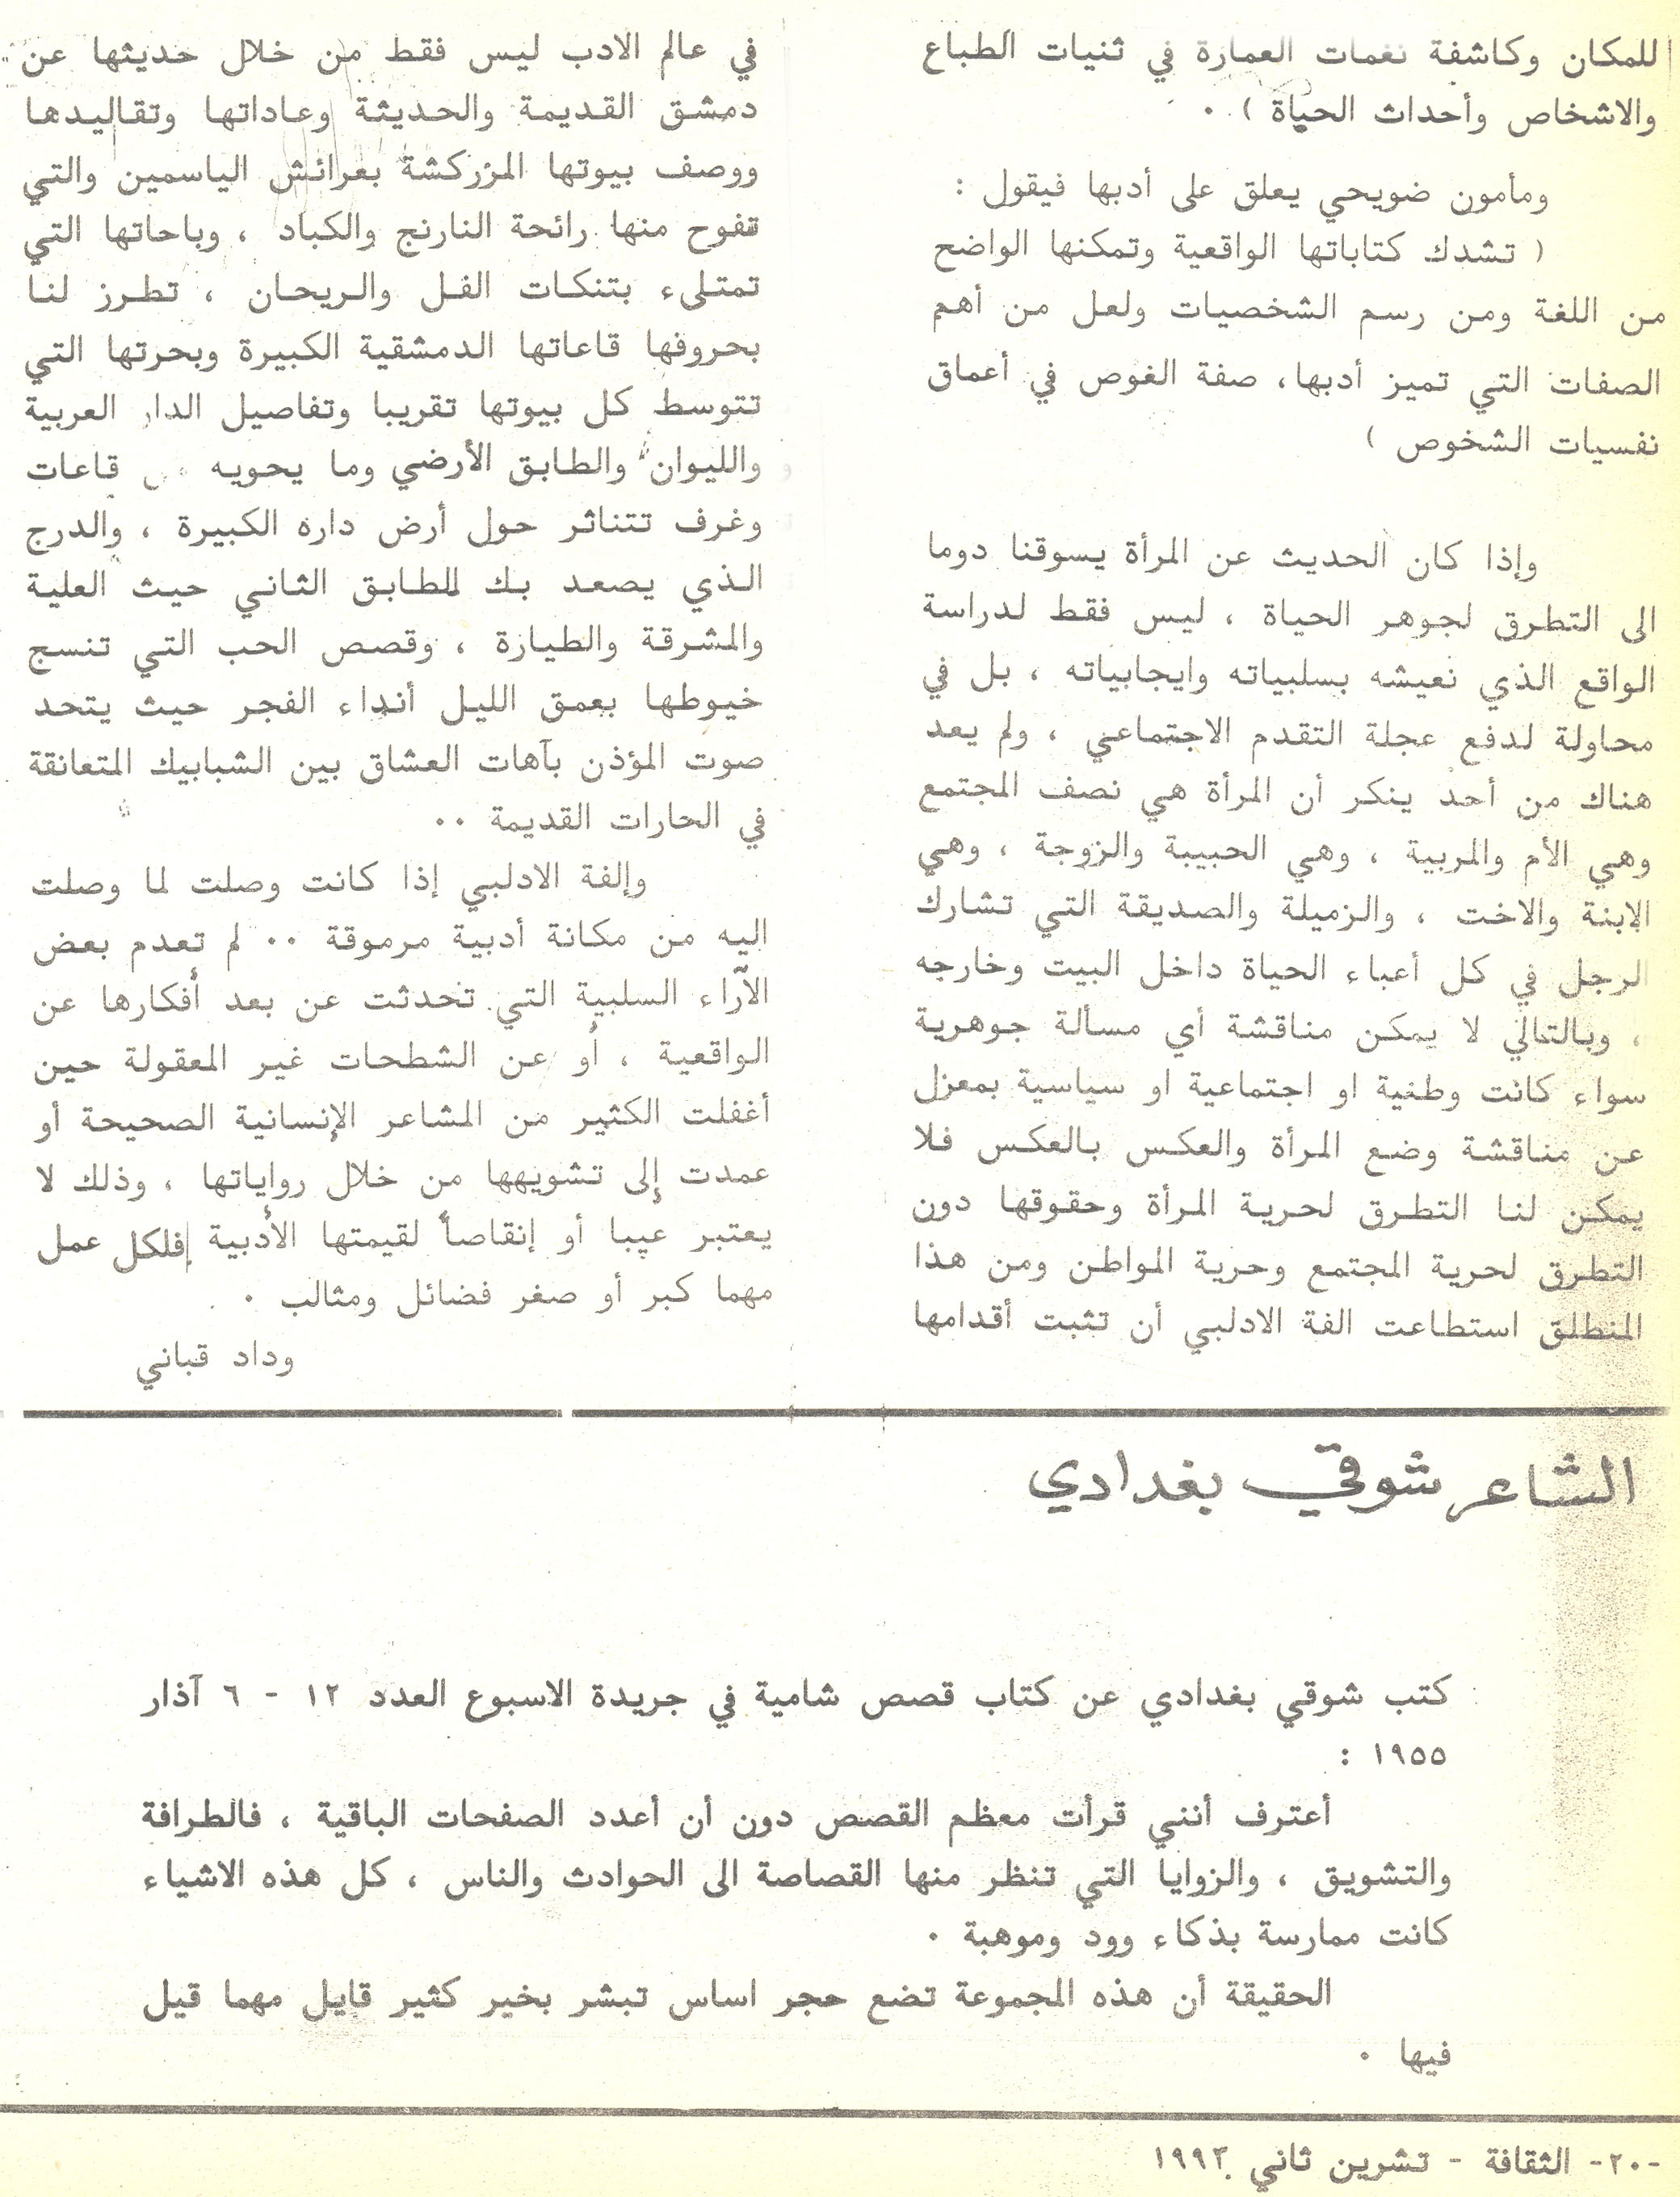 للمكان وكاشفة نغمات العمارة في ثنيات الطباع
والاشخاص وأحداث الحياة ) .
ومأمون ضويحي يعلق على أدبها فيقول :
( تشدك كتاباتها الواقعية وتمكنها الواضح
من اللغة ومن رسم الشخصيات ولعل من أهم
الصفات التي تميز أدبها، صفة الغوص في أعماق
نفسيات الشخوص )
وإذا كان الحديث عن المرأة يسوقنا دوما
الى التطرق لجوهر الحياة ، ليس فقط لدراسة
الواقع الذي نعيشه بسلبياته وايجابياته ، بل في
محاولة لدفع عجلة التقدم الاجتماعي ، ولم يعد
هناك من أحد ينكر أن المرأة هي نصف المجتمع
وهي الأم والمربية ، وهي الحبيبة والزوجة ، وهي
الابنة والاخت ، والزميلة والصديقة التي تشارك
الرجل في كل أعباء الحياة داخل البيت وخارجه
، وبالتالي لا يمكن مناقشة أي مسألة جوهرية
سواء كانت وطنية او اجتماعية او سياسية بمعزل
عن مناقشة وضع المرأة والعكس بالعكس فلا
يمكن لنا التطرق لحرية المرأة وحقوقها دون
التطرق لحرية المجتمع وحرية المواطن ومن هذا
المنطلق استطاعت الفة الادلبي أن تثبت أقدامها
في عالم الادب ليس فقط من خلال حديثها عن
دمشق القديمة والحديثة وعاداتها وتقاليدها
ووصف بيوتها المزركشة بعرائش الياسمين والتي
تفوح منها رائحة النارنج والكباد ، وباحاتها التي
تمتلىء بتنكات الفل والريحان ، تطرز لنا
بحروفها قاعاتها الدمشقية الكبيرة وبحرتها التي
تتوسط كل بيوتها تقريبا وتفاصيل الدار العربية
والليوان والطابق الأرضي وما يحويه قاعات
وغرف تتناثر حول أرض داره الكبيرة ، والدرج
الذي يصعد بك للطابق الثاني حيث العلية
والمشرقة والطيارة ، وقصص الحب التي تنسج
خيوطها بعمق الليل أنداء الفجر حيث يتحد
صوت المؤذن بآهات العشاق بين الشبابيك المتعانقة
في الحارات القديمة ..
وإلفة الادلبي إذا كانت وصلت لما وصلت
اليه من مكانة أدبية مرموقة .. لم تعدم بعض
الآراء السلبية التي تحدثت عن بعد أفكارها عن
الواقعية ، أو عن الشطحات غير المعقولة حين
أغفلت الكثير من المشاعر الإنسانية الصحيحة أو
عمدت إلى تشويهها من خلال رواياتها ، وذلك لا
يعتبر عيبا أو إنقاصاً لقيمتها الأدبية فلكل عمل
مهما كبر أو صغر فضائل ومثالب .
وداد قباني
الشاعر شوقي بغدادي
كتب شوقي بغدادي عن كتاب قصص شامية في جريدة الاسبوع العدد ١٢ - ٦ آذار
١٩٥٥ :
أعترف أنني قرأت معظم القصص دون أن أعدد الصفحات الباقية ، فالطرافة
والتشويق ، والزوايا التي تنظر منها القصاصة الى الحوادث والناس ، كل هذه الاشياء
كانت ممارسة بذكاء وود وموهبة .
الحقيقة أن هذه المجموعة تضع حجر اساس تبشر بخير كثير قايل مهما قيل
فيها .
-٢٠- الثقافة - تشرين ثاني ١٩٩٣